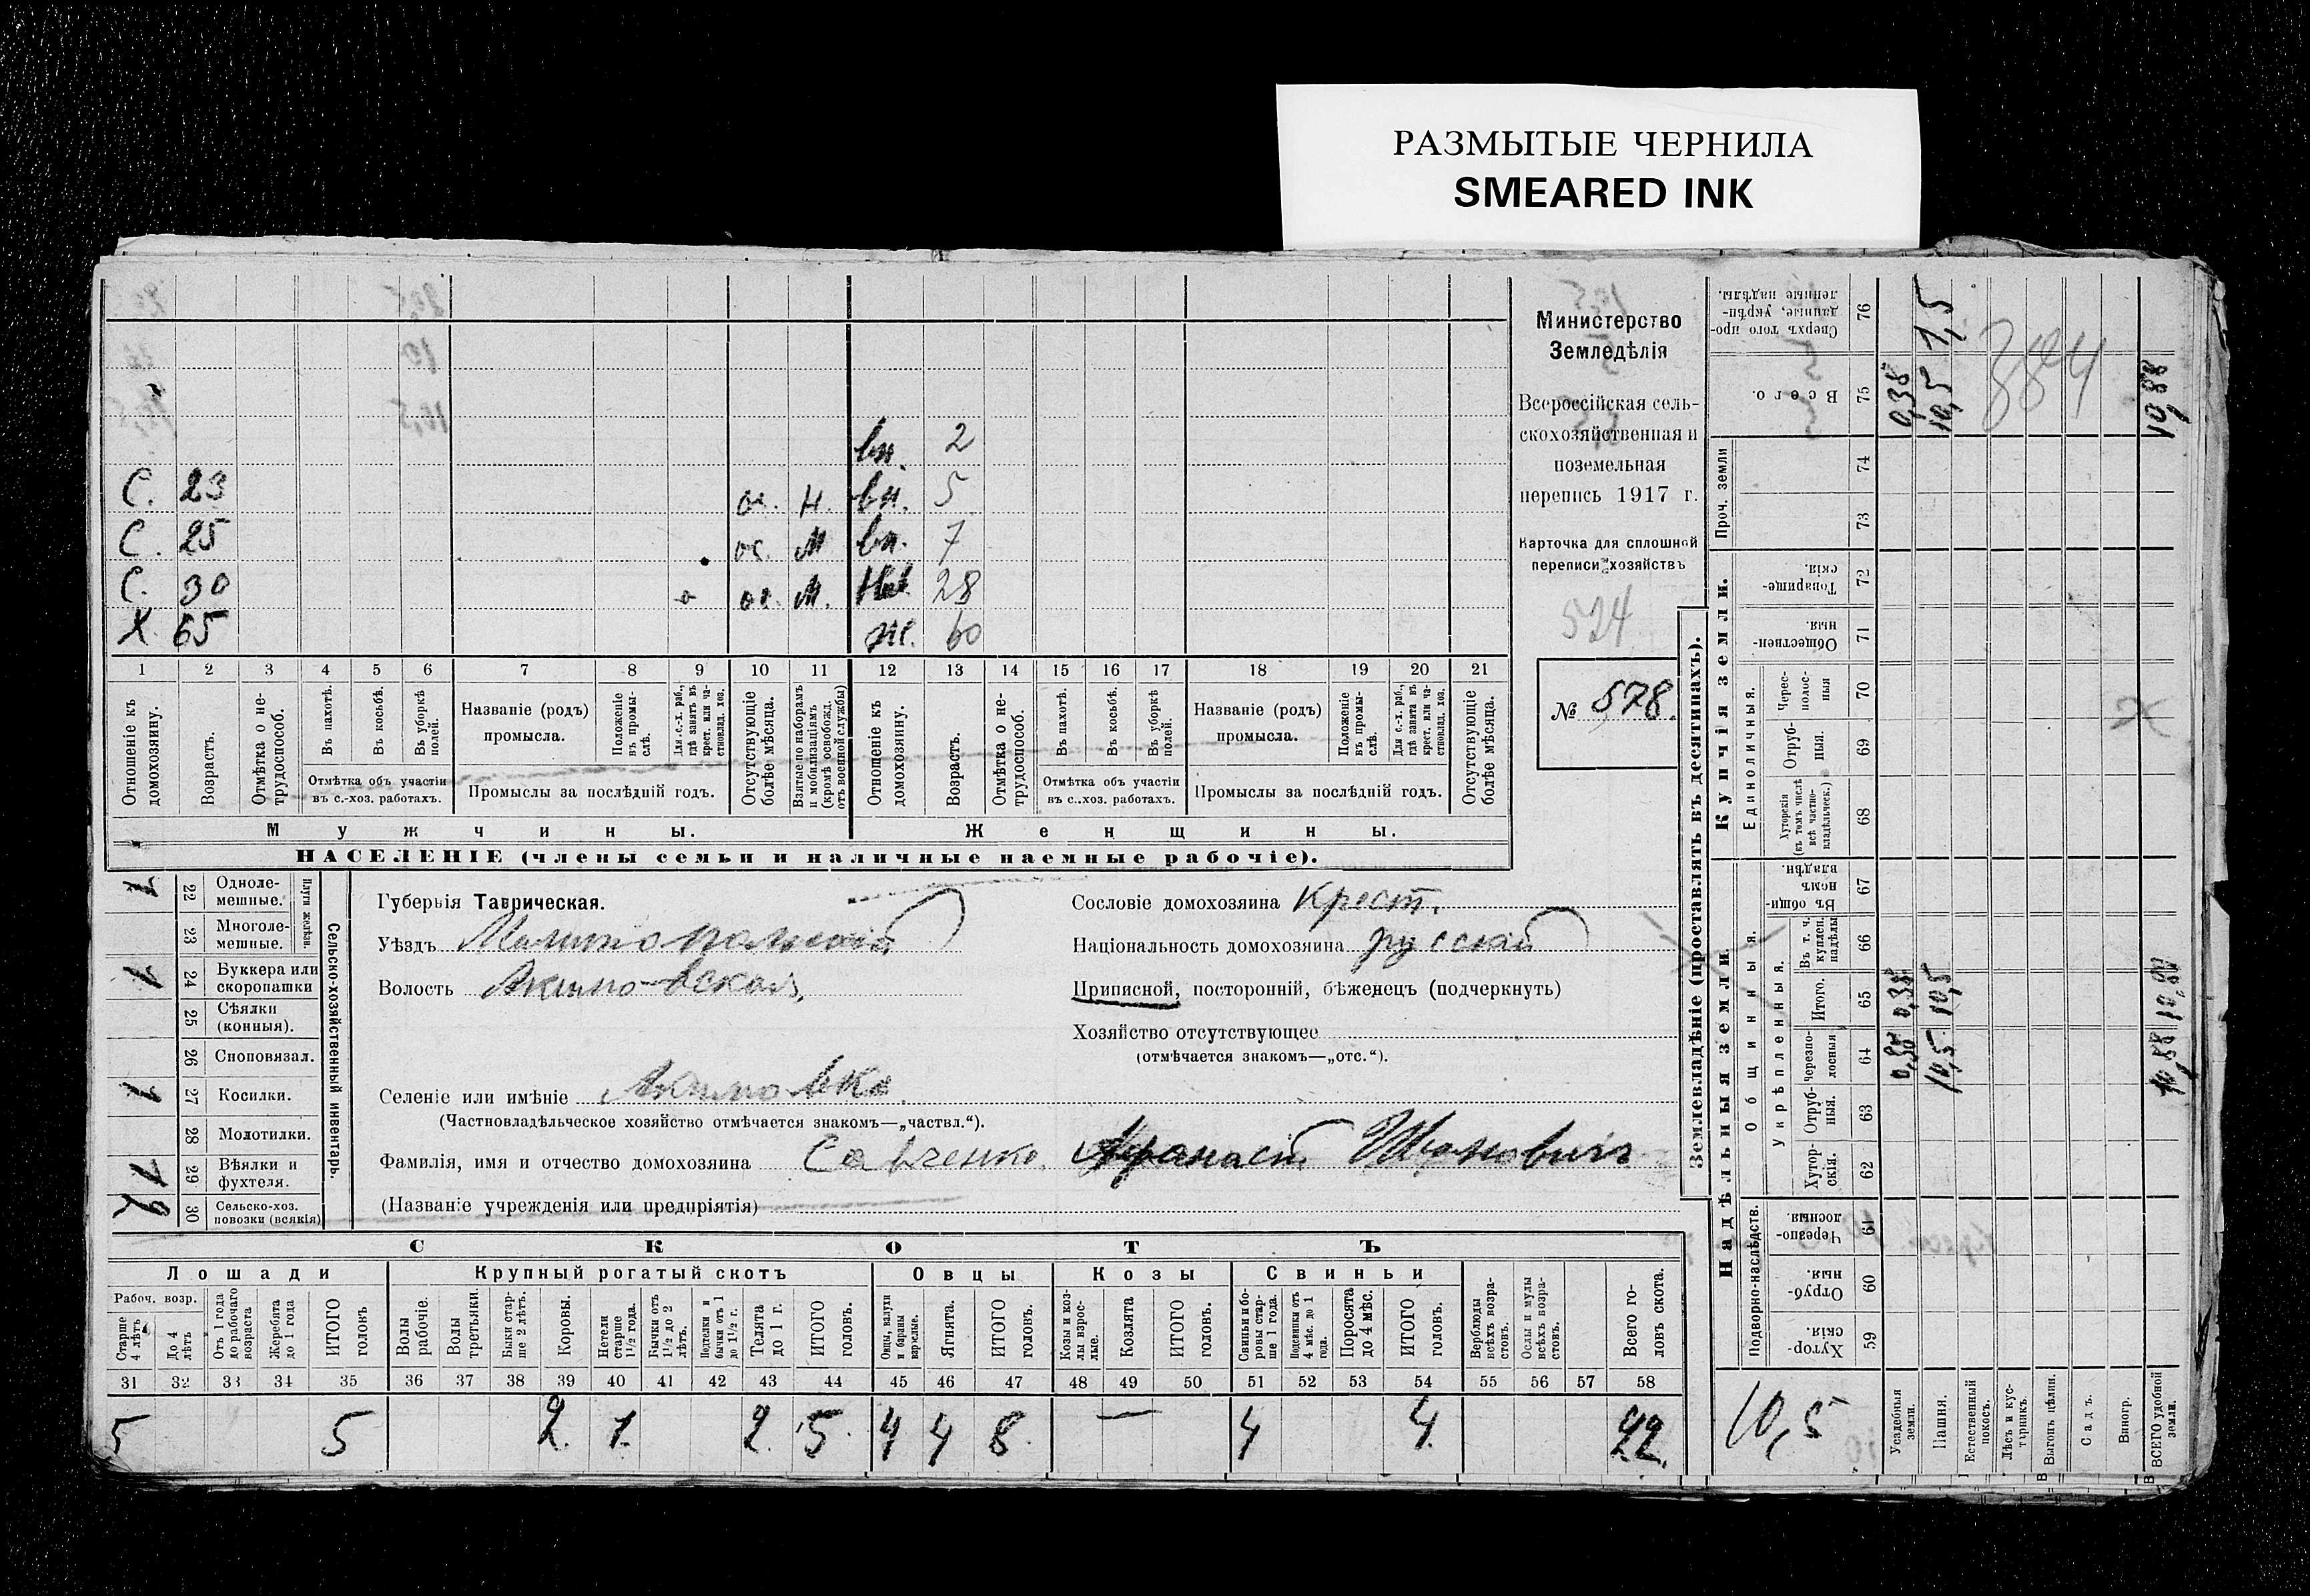 РАЗМЫТЫЕ ЧЕРНИЛА
SMEARED INK
Министерство
Земледѣлія
Всероссійская сель-
скохозяйственная и
поземельная
перепись 1917 г.
Карточка для сплошной
переписи хозяйствъ
524
№ 578.
вн. 2
С. 23 ос. Н. вн. 5
С. 25 ос. М вн. 7
С. 30 ос. М. 28
Х. 65 ж. 60
1 2 3 4 5 6 7 8 9 10 11 12 13 14 15 16 17 18 19 20 21
Отношеніе къ домохозяину.
Возрастъ.
Отмѣтка о не-трудоспособ.
Въ пахотѣ.
Въ косьбѣ.
Въ уборкѣ полей.
Отмѣтка объ участіи
въ с.-хоз. работахъ.
Названіе (родъ)
промысла.
Положеніе въ промы-слѣ.
Для с.-х. раб., гдѣ занятъ въ крест. или ча-стновлад. хоз.
Промыслы за послѣдній годъ.
Отсутствующіе болѣе мѣсяца.
Взятые по наборамъ и мобилизаціямъ (кромѣ освобожд. отъ военной службы)
Отношеніе къ домохозяину.
Возрастъ.
Отмѣтка о не-трудоспособ.
Въ пахотѣ.
Въ косьбѣ.
Въ уборкѣ полей.
Отмѣтка объ участіи
въ с..хоз. работахъ.
Названіе (родъ)
промысла.
Положеніе въ промы-слѣ.
Для с.-х. раб., гдѣ занята въ крест. или ча-стновлад. хоз.
Промыслы за послѣдній годъ.
Отсутствующіе болѣе мѣсяца.
Мужчины.
Женщины.
НАСЕЛЕНІЕ (члены семьи и наличные наемные рабочіе).
Сельско-хозяйственный инвентарь.
Плуги желѣзн.
1 22 Одноле-мешные.
23 Многоле-мешные.
1 24 Буккера или скоропашки
25 Сѣялки (конныя).
26 Сноповязал.
1 27 Косилки.
28 Молотилки.
1 29 Вѣялки и фухтеля.
2 30 Сельско-хоз. повозки (всякія)
Губернія Таврическая.
Уѣздъ Мелитопольскій
Волость Акимовская
Селеніе или имѣніе Акимовка
(Частновладѣльческое хозяйство отмѣчается знакомъ—„частвл.“).
Фамилія, имя и отчество домохозяина Савченко Афанасій Ивановичъ
(Названіе учрежденія или предпріятія)
Сословіе домохозяина Крест.
Національность домохозяина русскій
Приписной, посторонній, бѣженецъ (подчеркнуть)
Хозяйство отсутствующее
(отмѣчается знакомъ—„отс.“).
СКОТЪ
Лошади
Крупный рогатый скотъ
Овцы
Козы
Свиньи
Рабоч. возр.
Старше 4 лѣтъ
До 4 лѣтъ
Отъ 1 года до рабочаго возраста
Жеребята до 1 года
ИТОГО головъ
Волы рабочіе.
Волы третьяки.
Быки стар-ше 2 лѣтъ.
Коровы.
Нетели старше 1½ года.
Бычки отъ 1½ до 2 лѣтъ.
Подтелки и бычки отъ 1 до 1½ г.
Телята до 1 г.
ИТОГО головъ.
Овцы, валухи и бараны взрослые.
Ягнята.
ИТОГО головъ.
Козы и коз-лы взрос-лые.
Козлята
ИТОГО головъ.
Свиньи и бо-ровы стар-ше 1 года.
Подсвинки отъ 4 мѣс. до 1 года.
Поросята до 4 мѣс.
ИТОГО головъ.
Верблюды всѣхъ возра-стовъ.
Ослы и мулы всѣхъ возра-стовъ.
Всего го-ловъ скота.
31 32 33 34 35 36 37 38 39 40 41 42 43 44 45 46 47 48 49 50 51 52 53 54 55 56 57 58
5 5 2. 1. 2. 5. 4 4 8. — 4 4. 22.
Землевладѣніе (проставлять въ десятинахъ).
Надѣльныя земли
Купчія земли.
Проч. земли
Подворно-наслѣдств.
Общинныя.
Укрѣпленныя.
Единоличныя.
59 Хутор-скія.
60 Отруб-ныя.
61 Черезпо-лосныя.
62 Хутор-скія.
63 Отруб-ныя.
64 Черезпо-лосныя
65 Итого.
66 Въ т. ч. куплен. надѣлы
67 Въ общи-номъ владѣн.
68 Хуторскія (въ томъ числѣ всѣ частно-владѣльческ.)
69 Отруб-ныя.
70 Черес-полос-ныя
71 Обществен-ныя.
72 Товарище-скія.
73
74
75 Всего.
76 Сверхъ того про-данные, укрѣп-ленные надѣлы.
Усадебныя земли. 0,38 0,38 0,38
Пашня. 10,5 10,5 10,5 1,5
Естественный покосъ.
Лѣсъ и кус-тарникъ.
Выгонъ цѣлин.
Садъ.
Виногр.
ВСЕГО удобной земли. 10,88 10,88 10,88
884
10,5